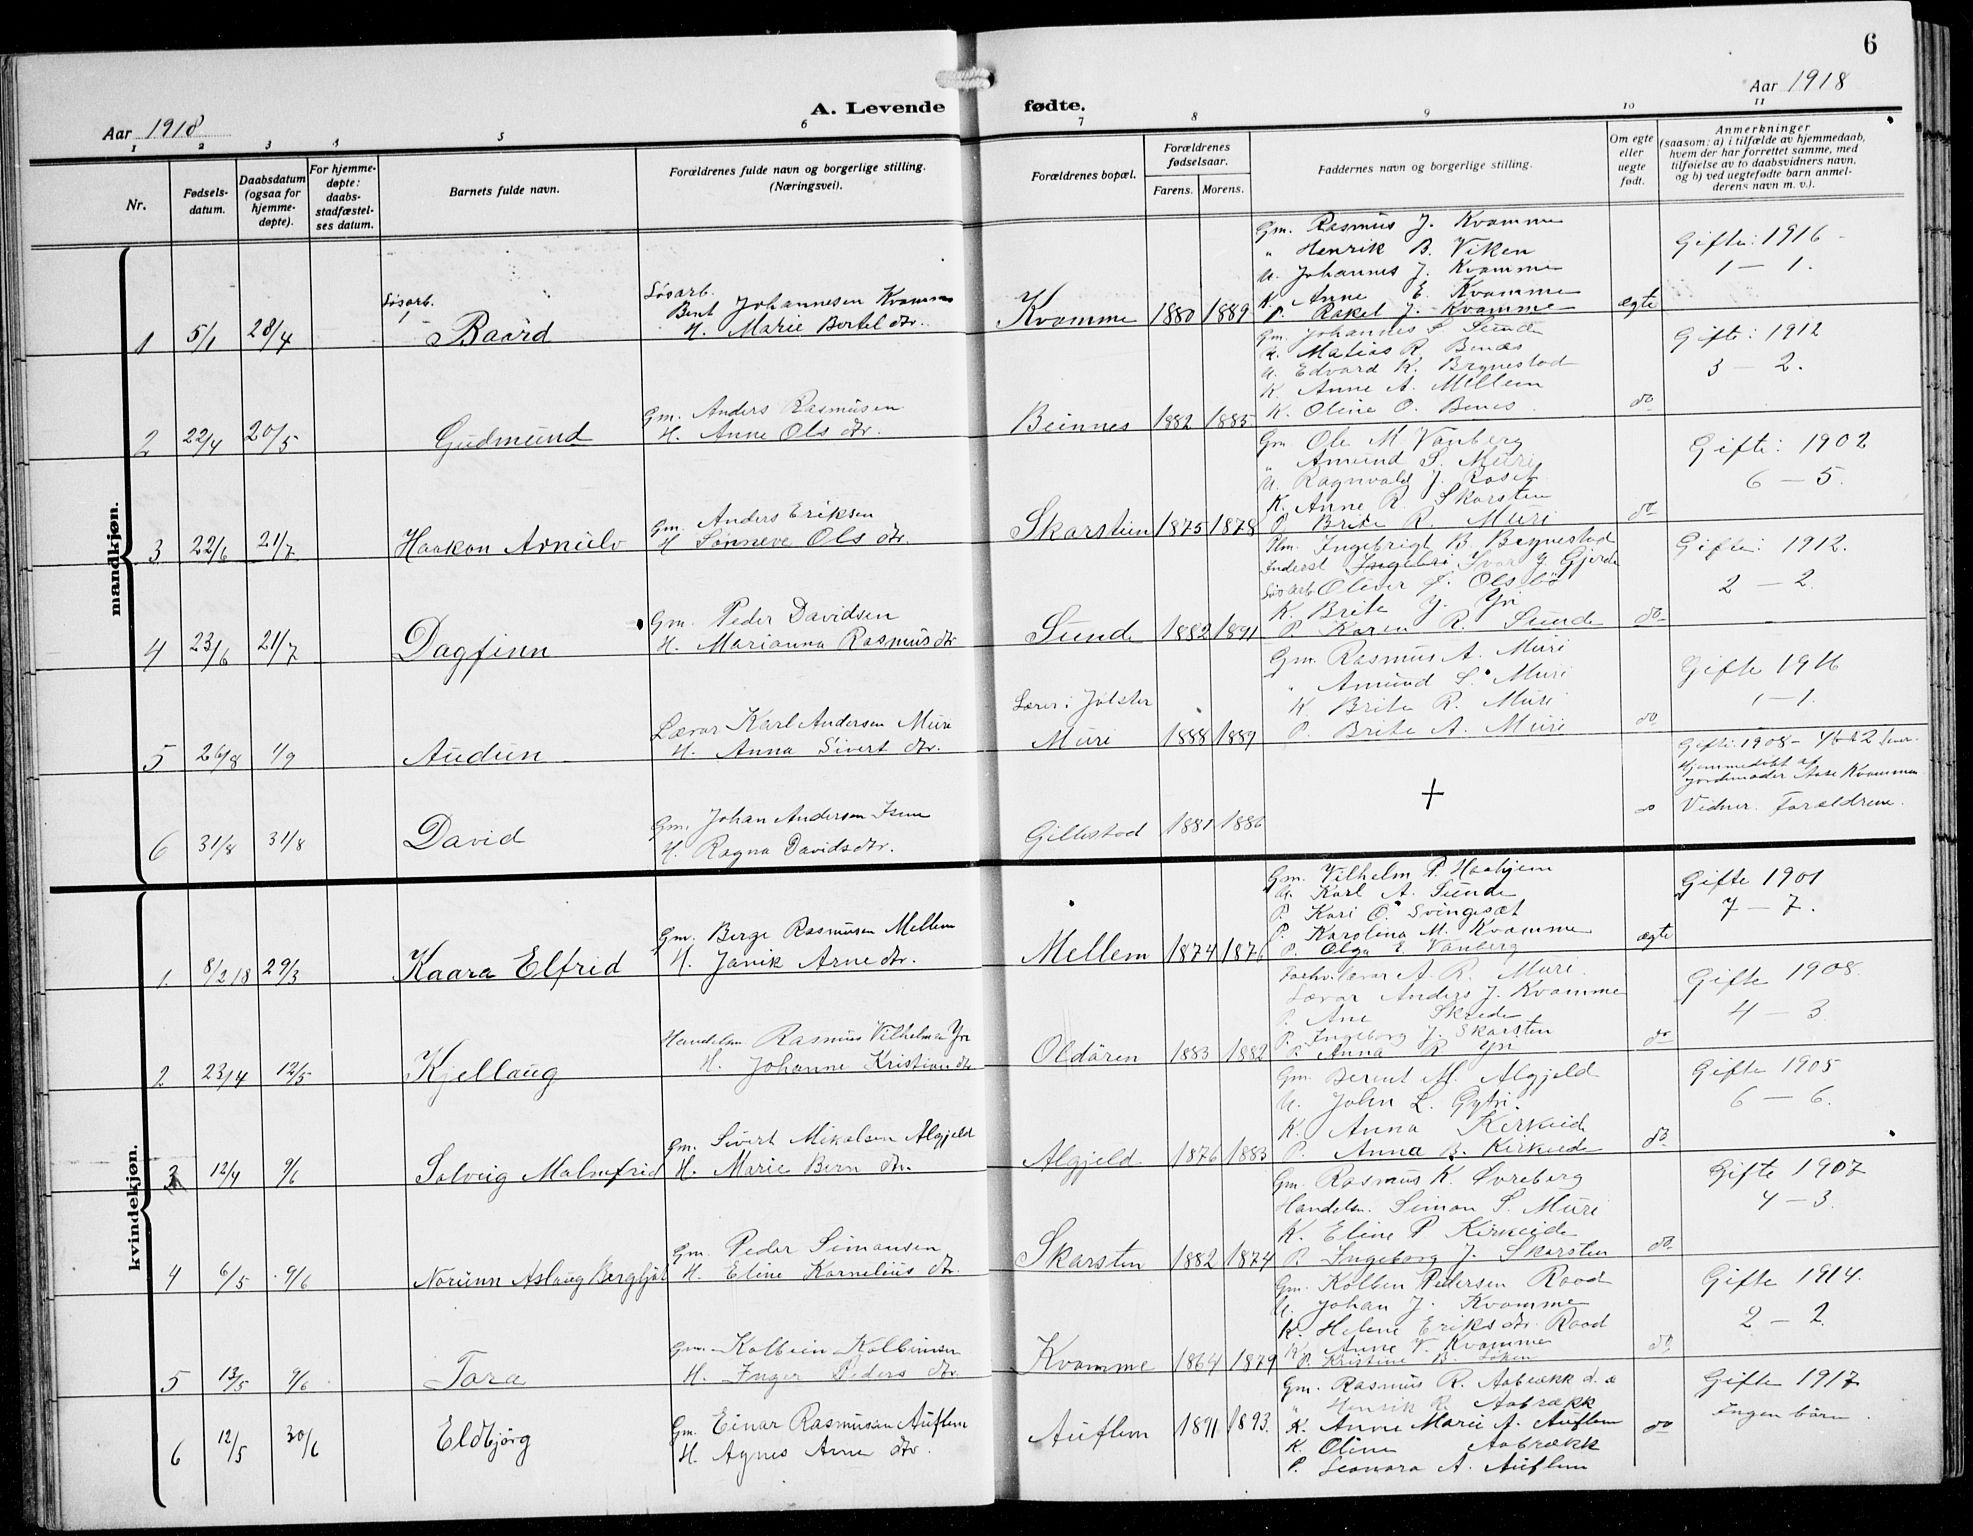 6
Aar 1918
A. Levende fødte.
Aar 1918
1 2 3 4 5 6 7 8 9 10 11
Nr.
Fødsels-
datum.
Daabsdatum
(ogsaa for
hjemme-
døpte).
For hjemme-
døpte:
daabs-
stadfæstel-
ses datum.
Barnets fulde navn.
Forældrenes fulde navn og borgerlige stilling.
(Næringsvei).
Forældrenes bopæl.
Forældrenes
fødselsaar.
Farens. Morens.
Faddernes navn og borgerlige stilling.
Om egte
eller
uegte
født.
Anmerkninger
(saasom: a) i tilfælde av hjemmedaab,
hvem der har forrettet samme, med
tilføielse av to daabsvidners navn,
og b) ved uegtefødte barn anmel-
derens navn m. v.).
mandkjøn.
1 5/1 28/4 Baard
Løsarb.
Løsarb.
Bent Johannesen Kvamme
H. Marie Bertel dtr.
Kvamme 1880 1889
Gm. Rasmus J. Kvamme
" Henrik B. Viken
U. Johannes J. Kvamme
K. Anne E. Kvamme
P. Rakel J. Kvamme
egte
Gifte: 1916
1 — 1.
2 22/4 20/5 Gudmund
Gm. Anders Rasmusen
H. Anne Ols dtr.
Beinnes 1882 1885
Gm. Johannes S. Sunde
U. Matias R. Benæs
U. Edvard K. Brynestad
K. Anne A. Mellem
K. Oline O. Benes
do
Gifte: 1912
3 — 2.
3 22/6 21/7 Haakon Arnulv
Gm. Anders Eriksen
H Sønneve Ols dtr.
Skarstein 1875 1878
Gm. Ole M. Vanberg
" Amund S. Muri
U. Ragnvald J. Roset
K. Anne R. Skarsten
P. Brite R. Muri
do
Gifte: 1902
6 — 5.
4 23/6 21/7 Dagfinn
Gm. Peder Davidsen
H. Marianna Rasmus dtr
Sunde 1882 1891
Ingebrigt B. Brynestad
Inderst Ivar J. Gjerde
Løsarb Oliver Olsbø
K Brite J. Yri
P. Karen R. Sunde
do
Gifte: 1912.
2 — 2.
5 26/8 1/9 Audun
Lærer Karl Andersen Muri
H. Anna Sivert dtr.
Lærer i Jølster
Muri 1888 1889
Gm. Rasmus A. Muri
" Amund S. Muri
K Brite R. Muri
P. Brite A. Muri
do
Gifte 1916
1 — 1.
6 31/8 31/8 David
Gm. Johan Andersen
H. Ragna Davidsdtr.
Gillestad 1881 1886
+
do
Gifte: 1908 -
Hjemmedøbt af
Jordemoder Kvamme
Vidner. Forældrene.
kvindekjøn.
1 8/2 18 29/3 Kaara Elfrid
Gm. Berge Rasmusen Mellem
H. Janik Arne dtr.
Mellem 1874 1876
Gm. Vilhelm P. Haahjem
U. Karl A. Sunde
P. Kari O. Svingeset
P. Karolina M. Kvamme
P. Olga E. Vanberg
egte
Gifte 1901
7 — 7.
2 23/4 12/5 Kjellaug
Handelsm Rasmus Vilhelmsen Yri
H. Johanne Kristian dtr
Oldören 1883 1882
Forhv. lærer A. R. Muri.
Lærer Anders J. Kvamme
P. Ane Skrede
P. Ingeborg J. Skarsten
P. Anna R Yri
do
Gifte 1908.
4 — 3
3 12/4 9/6 Solveig Malmfrid
Gm. Sivert Mikalsen Algjeld
H. Marie Bern dtr.
Algjeld. 1876 1883
Gm. Berent M. Algjeld
U. John L. Gytri.
K. Anna Kirkeide
P. Anna B. Kirkeide
do
Gifte 1905
6 — 6.
4 6/5 9/6 Norunn Aslaug Bergljot
Gm. Peder Simonsen
H. Eline Kornelius dtr.
Skarsten 1882 1874
Gm. Rasmus K. Øvreberg
Handelsm. Simon S. Muri
K. Eline P. Kirkeide
P. Ingeborg J. Skarsten
do
Gifte 1907
4 — 3.
5 13/5 9/6 Tora
Gm. Kolbein Kolbeinsen
H. Inger Peders dtr.
Kvamme 1864 1879
Gm. Kolben Pedersen Raad
U. Johan J. Kvamme
K. Helene Eriksdtr. Raad
K. Anne V. Kvamme
P. Kristine B.
do
Gifte 1914.
2 — 2.
6 12/5 30/6 Eldbjörg
Gm. Einar Rasmusen Auflem
H. Agnes Arne dtr.
Auflem 1891 1893.
Gm. Rasmus R. Aabrækk d. e
" Henrik R. Aabrækk
K. Anne Marie A. Auflem
K. Oline Aabrækk
P. Leonora A. Auflem
do
Gifte 1917
Ingen börn.